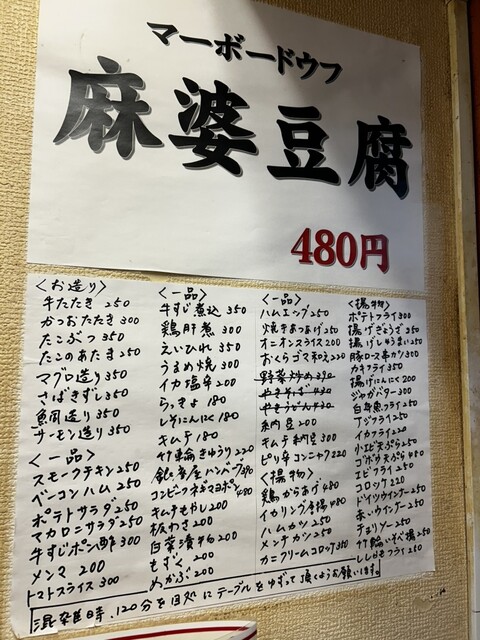 マーボードウフ
麻婆豆腐
480円
〈お造り〉
牛たたき 250
かつおたたき 300
たこぶつ 350
たこのあたま 250
マグロ造り 350
さばきずし 350
魚周造り 350
サーモン造り 350
〈一品〉
スモークチキン 250
ベーコンハム 250
ポテトサラダ 250
マカロニサラダ 250
牛すじポン酢 300
メンマ 200
トマトスライス 300
〈一品〉
牛すじ煮込 350
鶏肝煮 300
えいひれ 350
うるめ焼 300
イカ塩辛 200
らっきょ 180
しそにんにく 180
キムチ 180
竹輪きゅうり 220
コンビーフネギマヨポン 480
キムチもやし 200
板わさ 200
白菜漬平 200
もずく 200
めかぶ 200
〈一品〉
ハムエッグ 250
焼手あつあげ 250
オニオンスライス 200
おくらゴマ和え 220
野菜炒め 390
やきそば 430
やきうどん 430
納豆 200
キムチ納豆 300
ピリ辛コンニャク 220
〈揚物〉
鶏からあげ 480
イカリング唐揚 480
ハムカツ 250
メンチカツ 250
カニクリームコロッケ 350
〈揚物〉
ポテトフライ 300
揚げぎょうざ 350
揚げしゅうまい 250
豚ロス串カツ 300
カキフライ 350
揚げにんにく 200
ジャガバター 300
白身魚フライ 250
アジフライ 250
イカフライ 220
小エビ天ぷら 250
ゴボウ天ぷら 480
エビフライ 250
コロッケ 220
ドイツウインナー 250
赤いウインナー 250
チョリソー 250
竹輪いそべ揚 250
ししゃもフライ 250
混雑時、120分を目処にテーブルをゆずって頂くようお願います。